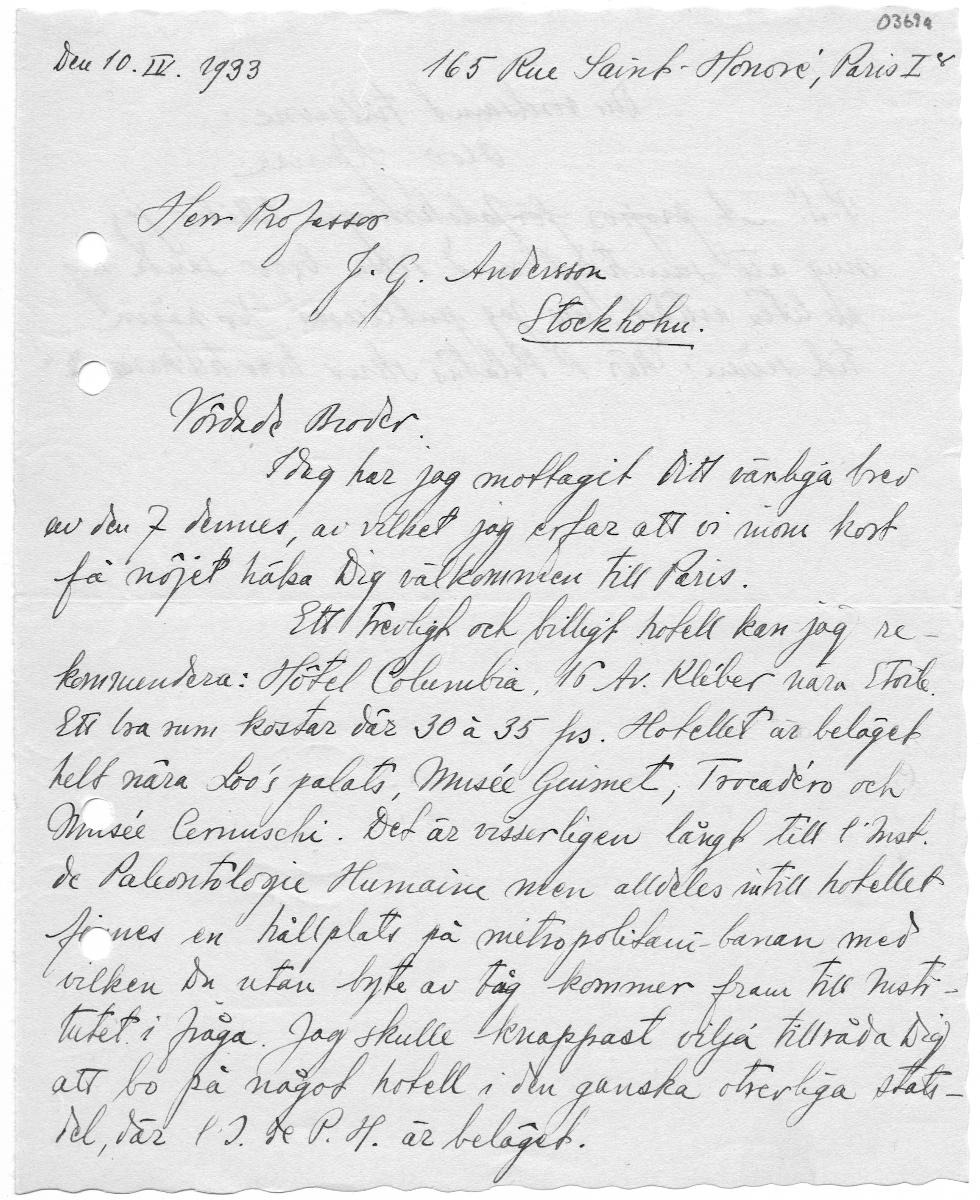 0369a
Den 10. IV. 1933 165 Rue Saint-Honoré, Paris Ier
Herr Professor
J. G. Andersson
Stockholm.
Vördade Broder.
Idag har jag mottagit Ditt vänliga brev
av den 7 dennes, av vilket jag erfar att vi inom kort
få nöjet hälsa Dig välkommen till Paris.
Ett trevligt och billigt hotell kan jag re-
kommendera: Hôtel Columbia, 16 Av. Kléber nära Etoile.
Ett bra rum kostar där 30 à 35 frs. Hotellet är beläget
helt nära Loo's palats, Musée Guimet, Trocadéro och
Musée Cernuschi. Det är visserligen långt till l'Inst.
de Paleontologie Humaine men alldeles intill hotellet
finnes en hållplats på métropolitain-banan med
vilken Du utan byte av tåg kommer fram till Insti-
tutet i fråga. Jag skulle knappast vilja tillråda Dig
att bo på något hotell i den ganska otrevliga stats-
del, där l'I. de P. H. är beläget.